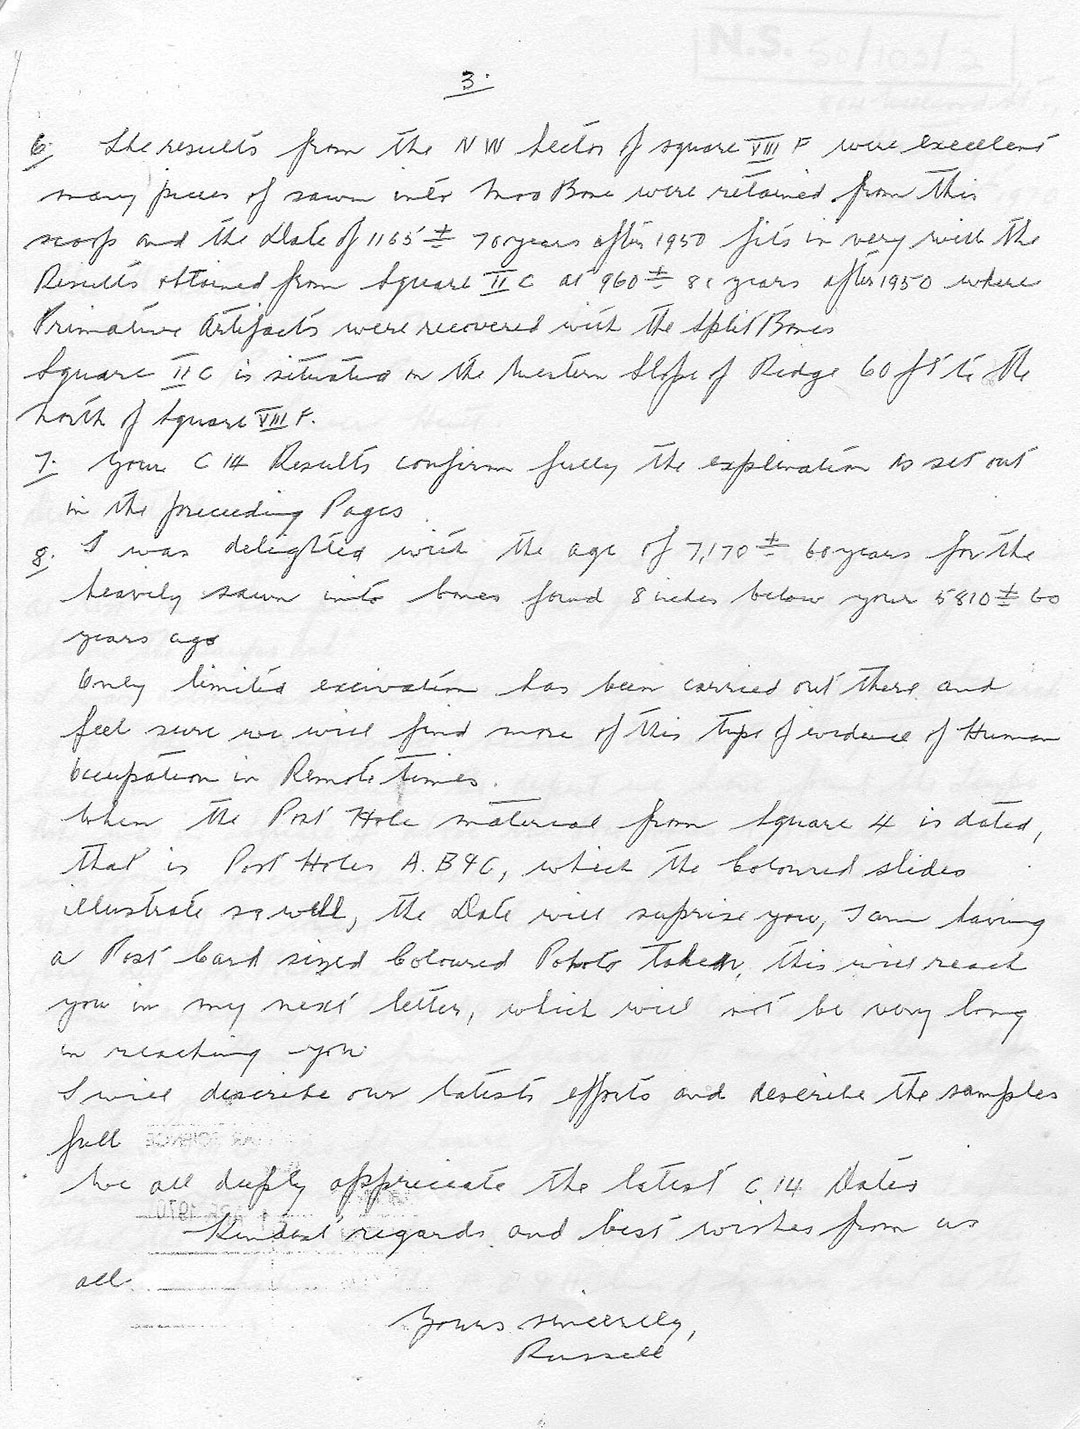 3.
6. The results from the NW Sector of square VIII F were excellent
many pieces of sawn into Moa Bone were retained from this
scoop and the Date of 1165 ± 70 years after 1950 fits in very with the
Results obtained from Square II C at 960 ± 81 years after 1950 where
Primative Artifacts were recovered with the Split Bones
Square II C is situated on the Western Slope of Ridge 60 ft to the
North of Square VIII F.
7. Your C 14 Results confirm fully the explination as set out
in the preceeding Pages
8. I was delighted with the age of 7,170 ± 60 years for the
heavily sawn into bones found 8 inches below your 5810 ± 60
years ago
Only limited excivation has been carried out there and
feel sure we will find more of this type of evidence of Human
Occupation in Remote times.
When the Post Hole material from Square 4 is dated,
that is Post Holes A. B & C, which the Coloured slides
illustrate so well, the Date will suprise you, I am having
a Post Card sized Coloured Pohoto taken, this will reach
you in my next letter, which will not be very long
in reaching you
I will describe our latests efforts and describe the samples
full
We all deeply appreciate the latest C.14 Dates
Kindest regards and best wishes from us
all
Yours sincerely,
Russell